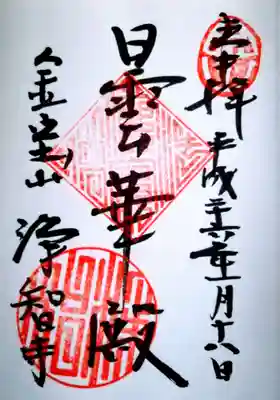 奉拝 平成二十六年一月十八日
曇華殿
金宝山 浄智寺